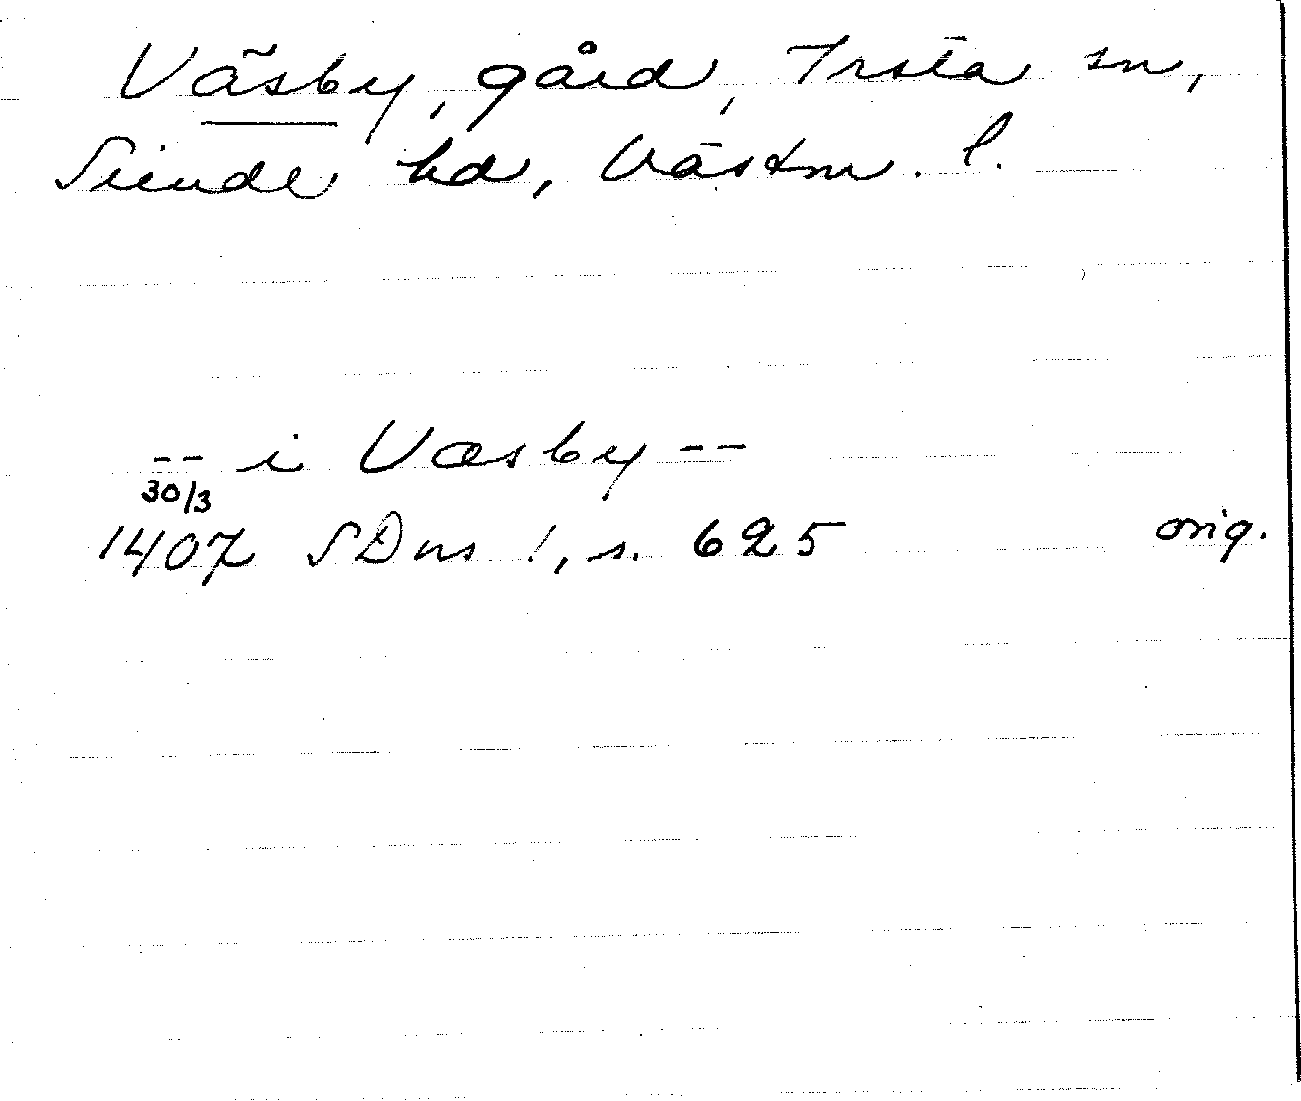 Väsby, gård, Irsta sn,
Siende hd, Västm. l.
-- i Væsby --
30/3
1407 SDns 1, s. 625 orig.